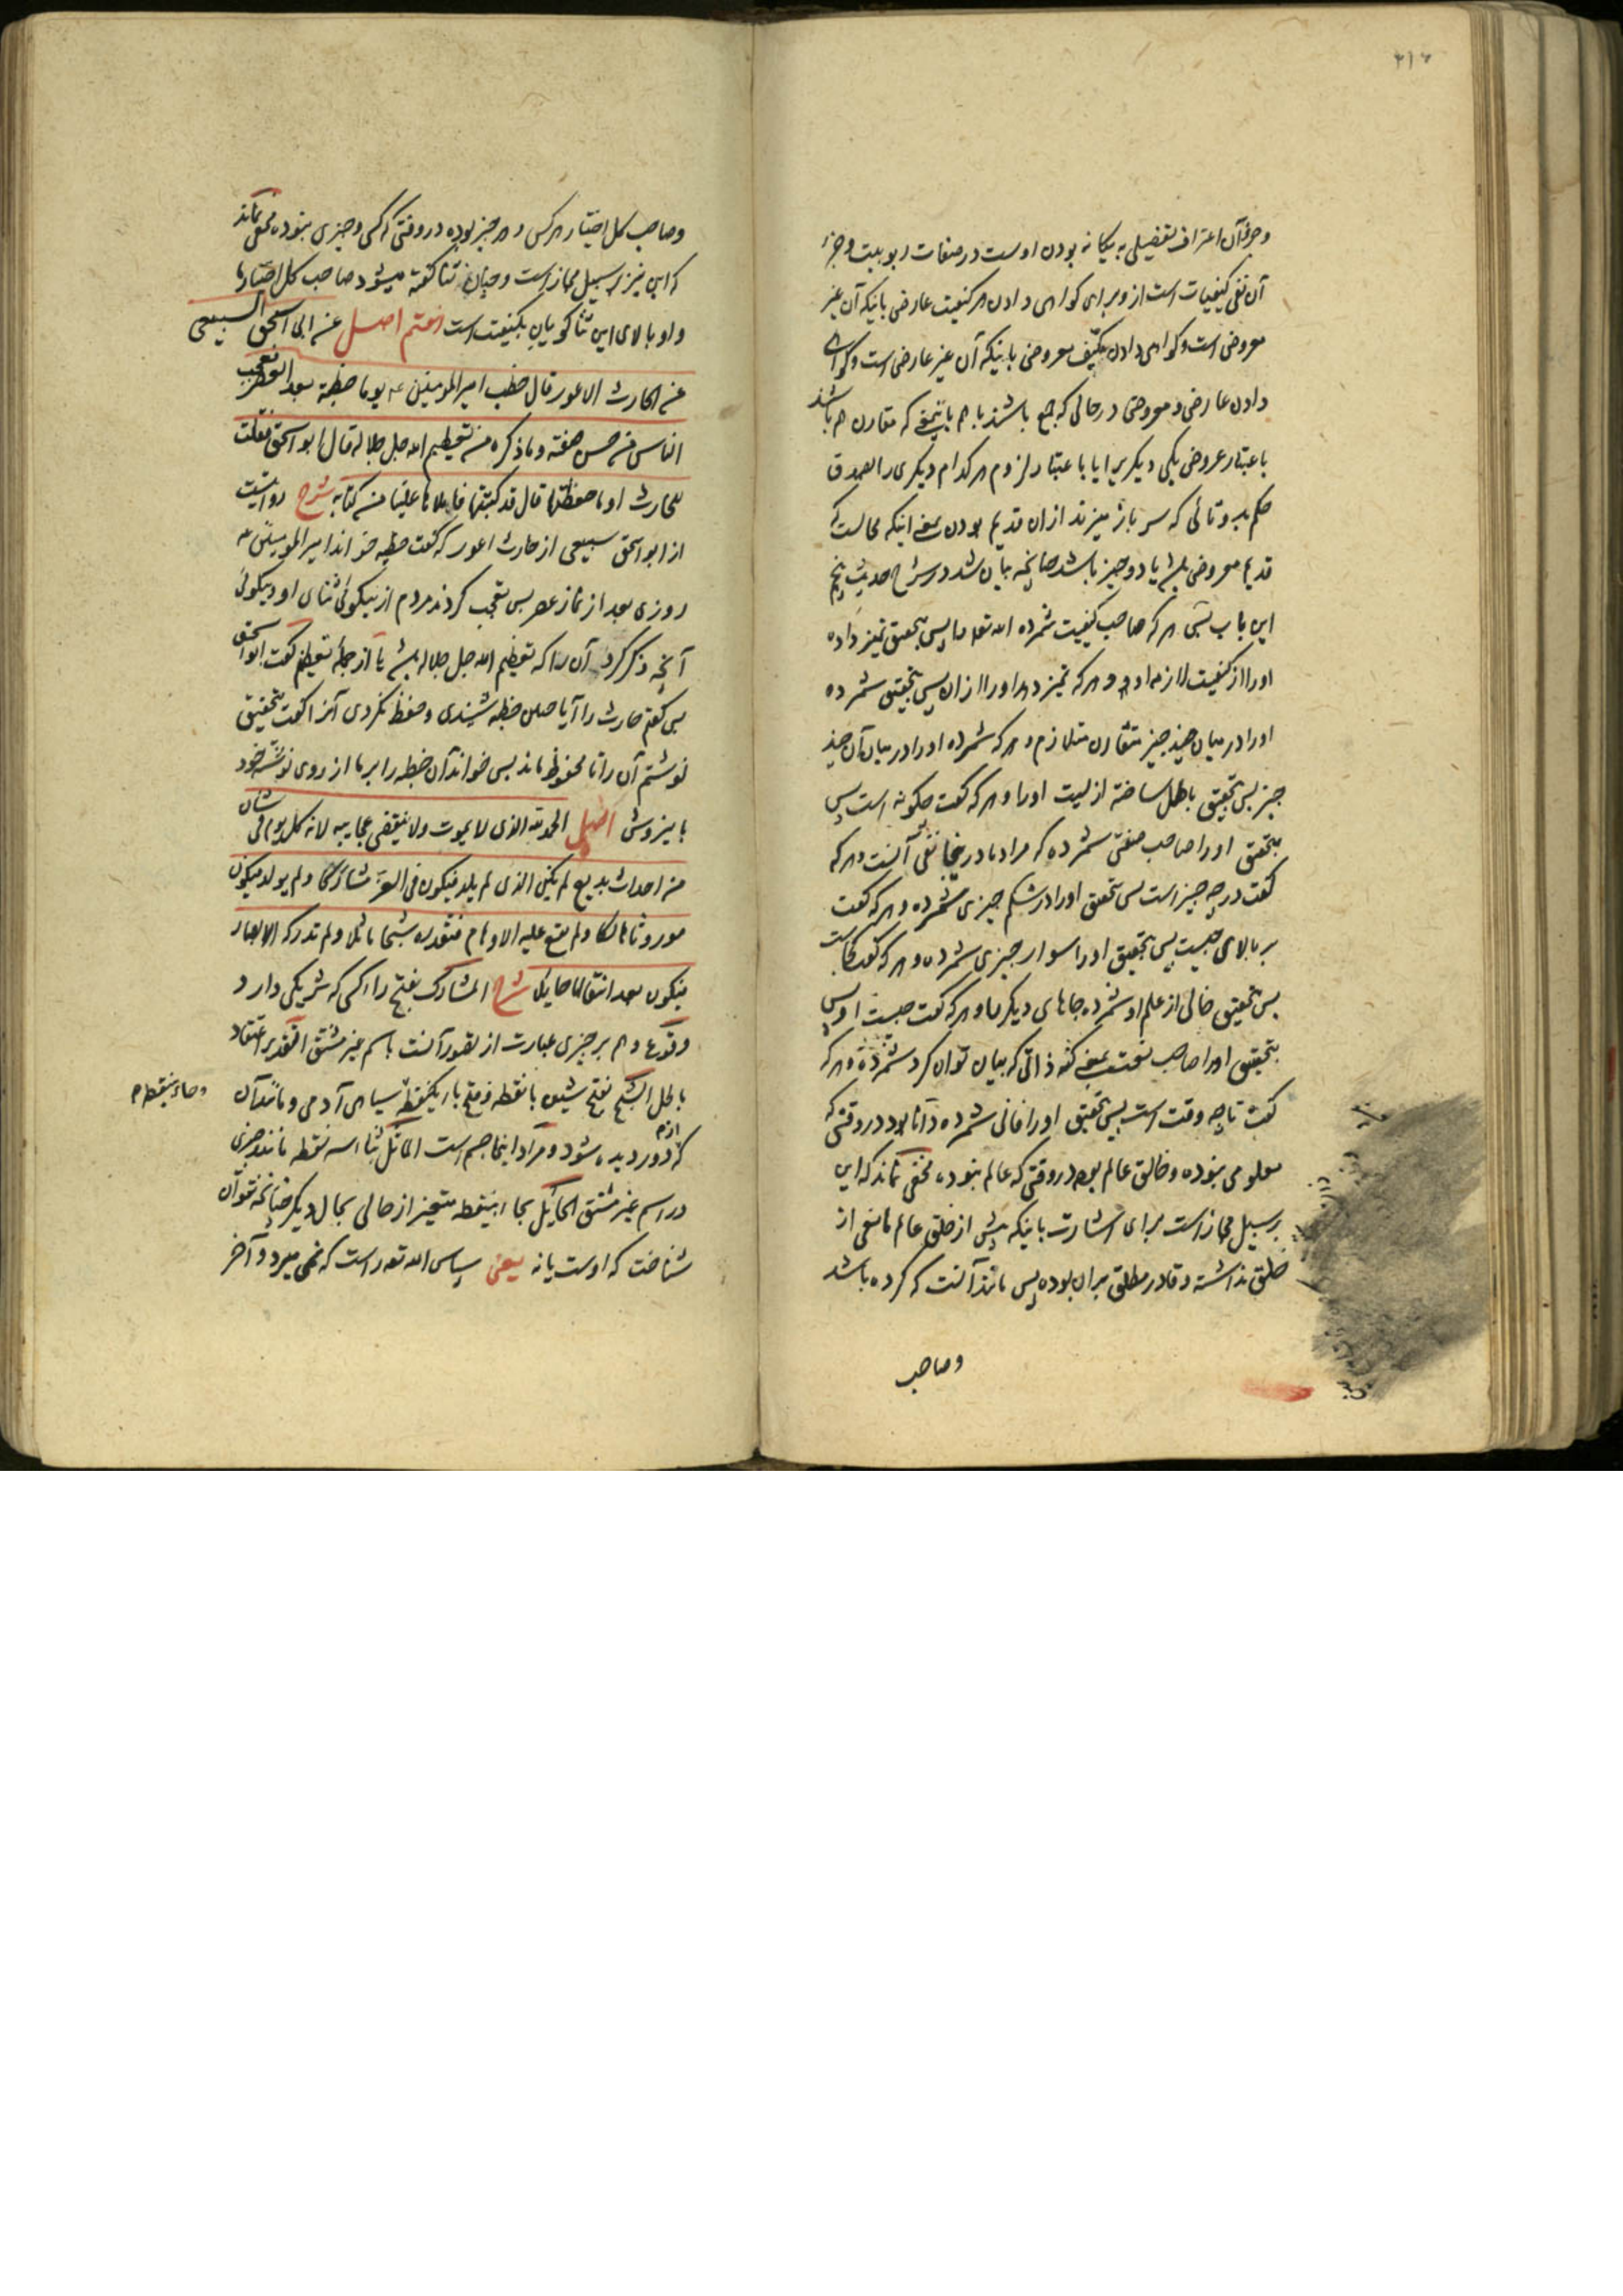 ۲۱۶
و جزء آن اعتراف تفضیلی به یگانه بودن اوست در صفات ربوبیت و جزء
آن نفی کیفیات است ازو برای گواهی دادن هر کیفیت عارضی باینکه آن غیر
معروض است و گواهی دادن مکیّف معروض باینکه آن غیر عارض است و گواهی
دادن عارض و معروض در حالی که جمع باشند با هم باین معنی که مقارن هم باشند
باعتبار عروض یکی دیگریرا یا باعتبار لزوم هر کدام دیگری را بصدق
حکم بدوتائی که سر باز میزند ازان قدیم بودن یعنی اینکه محالست که
قدیم معروض باشد یا دو چیز باشد چنانچه بیان شد در شرح حدیث پنجم
این باب پس هر که صاحب کیفیت شمرده الله تعالی را پس بتحقیق تمیز داده
او را از کیفیت لازمه او و هر که تمیز دهد او را ازان پس بتحقیق شمرده
او را در میان چند چیز متقارن متلازم و هر که شمرده او را در میان آن چند
چیز پس بتحقیق باطل ساخته ازلیت او را و هر که گفت چگونه است پس
بتحقیق او را صاحب صفتی شمرده که مراد ما در اینجا نفی آنست و هر که
گفت در چه چیز است پس بتحقیق او را در شکم چیزی شمرده و هر که گفت
بر بالای چیست پس بتحقیق او را سوار چیزی شمرده و هر که گفت کجاست
پس بتحقیق خالی از علم او شمرده جاهای دیگر را و هر که گفت چیست او پس
بتحقیق او را صاحب نعت یعنی کنه ذاتی که بیان توان کرد شمرده و هر که
گفت تا چه وقت است پس بتحقیق او را فانی شمرده دانا بود در وقتی که
معلومی نبوده و خالق عالم بوده در وقتی که عالم نبوده مخفی نماند که این
بر سبیل مجاز است برای اشارت باینکه پیش از خلق عالم مانعی از
خلق نداشته و قادر مطلق بران بوده پس مانند آنست که کرده باشد
و صاحب
و صاحب کل اختیار هر کس و هر چیز بوده در وقتی که کسی و چیزی نبوده مخفی نماند
که این نیز بر سبیل مجاز است و چنان ثنا گفته میشود صاحب کل اختیار ما
و او بالای این ثنا گویان بکیفیت است هفتم اصل عن ابی اسحق السبیعی
عن الحارث الاعور قال خطب امیر المومنین ع یوما خطبة بعد العصر فعجب
الناس من حسن صفته و ما ذکره من تعظیم الله جل جلاله قال ابو اسحق فقلت
للحارث او ما حفظتها قال قد کتبتها فاملاها علینا من کتابه شرح روایتست
از ابو اسحق سبیعی از حارث اعور که گفت خطبه خواند امیر المومنین ع
روزی بعد از نماز عصر پس تعجب کردند مردم از نیکوئی ثنای او و نیکوئی
آنچه ذکر کرد آن را که تعظیم الله جل جلاله باشد یا از جمله تعظیم گفت ابو اسحق
پس گفتم حارث را آیا صلی خطبه شنیدی و حفظ نکردی آنرا گفت بتحقیق
نوشتم آن را تا محفوظ ماند پس خواند آن خطبه را بر ما از روی نوشته خود
باینروش اصل الحمد لله الذی لا یموت و لا ینقضی عجایبه لانه کل یوم فی شان
من احداث بدیع لم یکن الذی لم یلد فیکون فی العز مشارکا و لم یولد فیکون
موروثا هالکا و لم یقع علیه الاوهام فتقدره شبحا ماثلا و لم تدرکه الابصار
فیکون بعد انتقالها حایلا شرح المشارک بفتح راء کسی که شریکی دارد
وقوع وهم بر چیزی عبارت از تصور آنست باسم غیر مشتق التقدیر اعتقاد
باطل الشبح بفتح شین بانقطه و فتح باء یکنقطه سیاهی آدمی و مانند آن
و حاء بینقطه م
که از دور دیده شود و مراد اینجا جسم است الماثل بثاء سه نقطه مانند چیزی
در اسم غیر مشتق الحایل بحاء بینقطه متغیر از حالی بحال دیگر چنانچه نتوان
شناخت که اوست یا نه یعنی سپاس الله تعه راست که نمی میرد و آخر